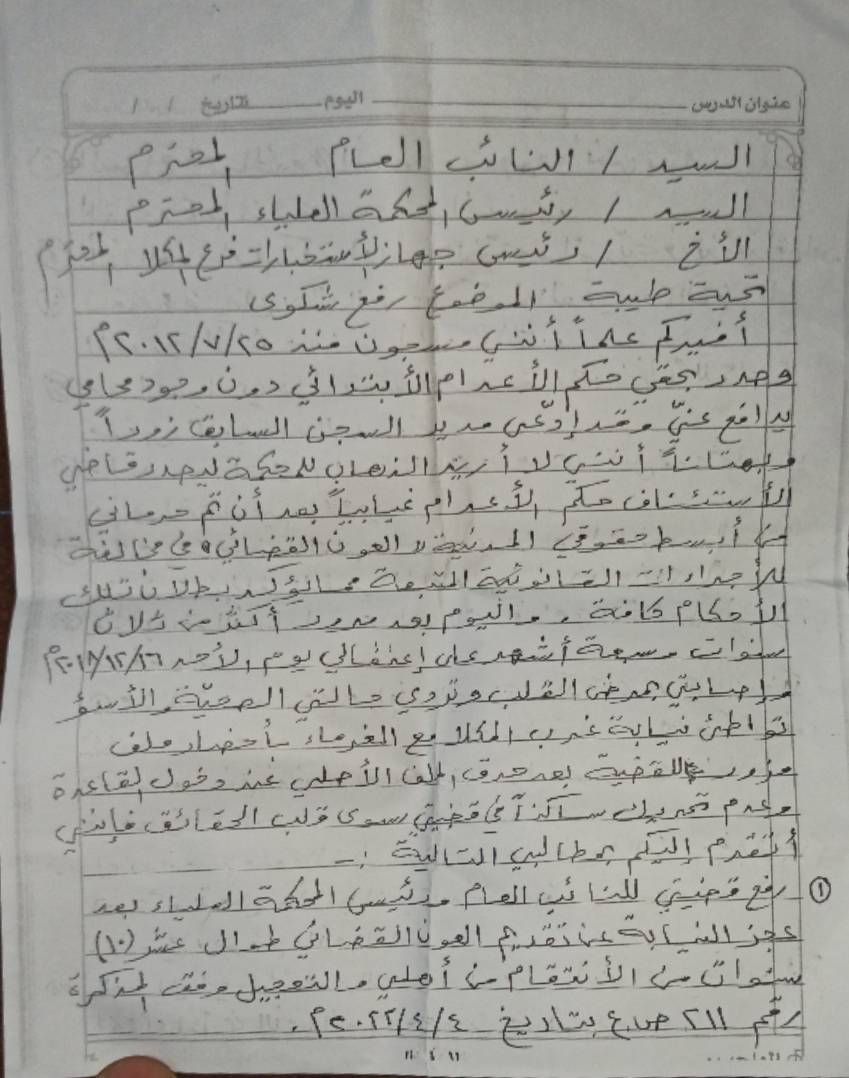 عنوان الدرس ــــــــ اليوم ــــــــ التاريخ / /
السيد / النائب العام المحترم
السيد / رئيس المحكمة العلياء المحترم
الأخ / رئيس جهاز الأستخبارات فرع المكلا المحترم
تحية طيبة الموضوع رفع شكوى
أفيدكم علماً أنني مسجون منذ ٢٠١٢/٧/٢٥م
وصدر بحقي حكم الأعدام الأبتدائي دون وجود محامي
يدافع عنيّ وقد إدّعى مدير السجن السابق زوراً
وبهتاناً أنني لا أريد الذهاب للمحكمة ليصدر قاضي
الأستئناف حكم الأعدام غيابياً بعد أن تم حرماني
من أبسط حقوقي المدنية " العون القضائي " في مخالفة
للأجراءات القانونية المتبعة مما يؤكد بطلان تلك
الأحكام كافة . واليوم بعد مرور أكثر من ثلاث
سنوات وسبعة أشهر على إعتقالي يوم الأحد ٢٠١٨/١٢/١٦م
وإصابتي بمرض القلب وتردي حالتي الصحيّة والأسؤ
تواطئ نيابة غرب المكلا مع الغرماء بأحضار ملف
مزور للقضية بعد حرق الملف الأصلي عند دخول القاعدة
وعدم تحريك ساكناً في قضيتي سوى قلب الحقائق فإنني
أتقدم إليكم بمطالبي التالية :-
① رفع قضيتي للنائب العام ورئيس المحكمة العلياء بعد
عجز النيابة عن تقديم العون القضائي طوال عشر (١٠)
سنوات من الأنتقام من أهلي والتعجيل وفق المذكرة
رقم ٢١١ ص.ع بتاريخ ٢٠٢٢/٤/٤م .